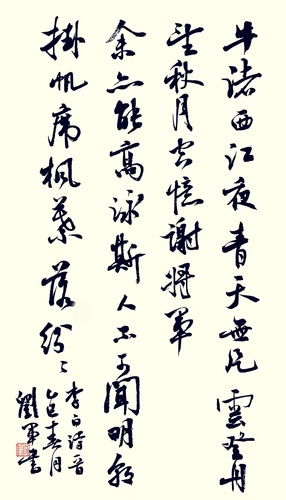 牛渚西江夜青天無片雲登舟
望秋月空憶謝將軍
余亦能高詠斯人不可聞明朝
掛帆席楓葉落紛〻
李白诗
乙巳春月
劉軍書